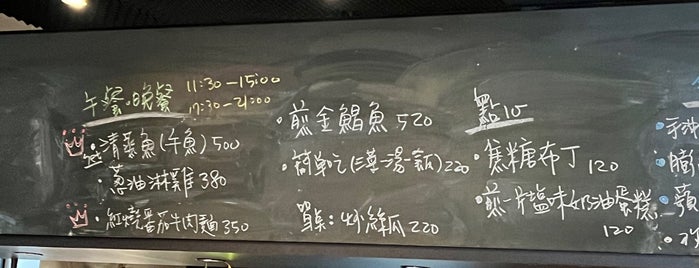 午餐·晚餐 11:30-15:00
17:30-21:00
·清蒸魚(午魚) 500
·蔥油淋雞 380
·紅燒番茄牛肉麵 350
·煎金鯧魚 520
·簡單吃 220
單點: 炒絲瓜 220
點心
·焦糖布丁 120
·煎一片鹽味奶油蛋糕
120
手沖